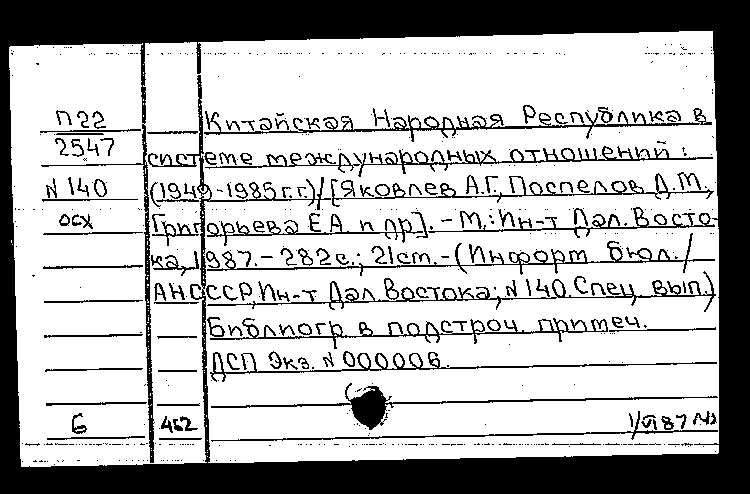 П22
2547
N 140
осх
Китайская Народная Республика в
системе международных отношений:
(1949-1985г.г.)/[Яковлев А.Г., Поспелов Д.М.,
Григорьева Е.А. и др]. - М.: Ин-т Дал. Восто-
ка, 1987. - 282с.; 21cm. - (Информ. бюл. /
АН СССР, Ин-т Дал. Востока; N 140. Спец. вып.)
Библиогр. в подстроч. примеч.
ДСП Экз. N 000006.
Б
462